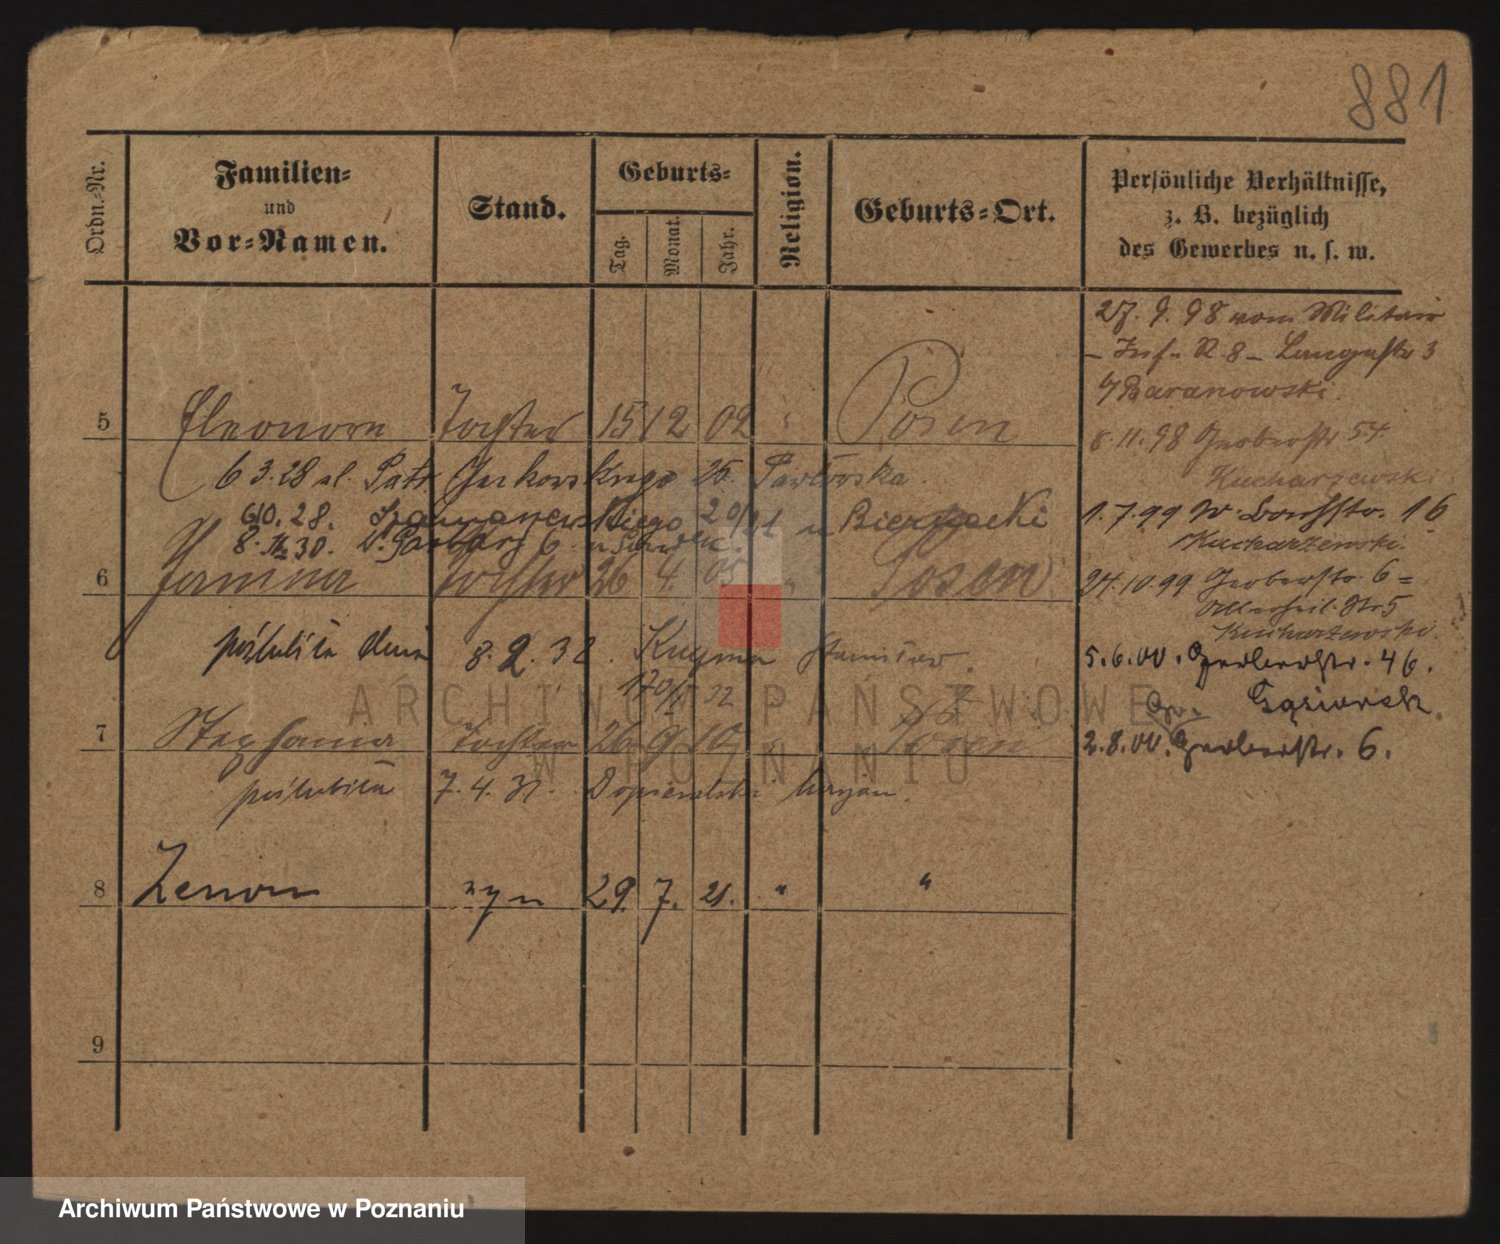 881
Ordn.-Nr.
Familien-
und
Vor-Namen.
Stand.
Geburts-
Tag.
Monat.
Jahr.
Religion.
Geburts-Ort.
Persönliche Verhältnisse,
z. B. bezüglich
des Gewerbes u. s. w.
27. 9. 98 vom Militair
- Inf. R. 8 - Langestr 3
Baranowski.
5 Eleonore Tochter 15 12 02 Posen
8.11.98 Gerberstr 54
Kucharzewski
6 3.28 ul. Gąsiorowskiego 25.
6 10. 28. 20/21 u Biernacki
8. 30. W. Garbary 6
1.7.99 W. 16
Kucharzewski.
6 Janina Tochter 26 4 05 " Posen
24.10.99 Gerberstr. 6 =
Allerheil. Str 5
Kucharzewski.
poślubiła dnia 8. 2. 32. Stanisław.
5.6.00. Gerberstr. 46.
7 Stephania Tochter 26 9 10 " Posen
2.8.00. Gerberstr. 6.
poślubiła 7. 4. 31.
8 Zenon syn 29. 7. 21. " "
9
ARCHIWUM PAŃSTWOWE
W POZNANIU
Archiwum Państwowe w Poznaniu